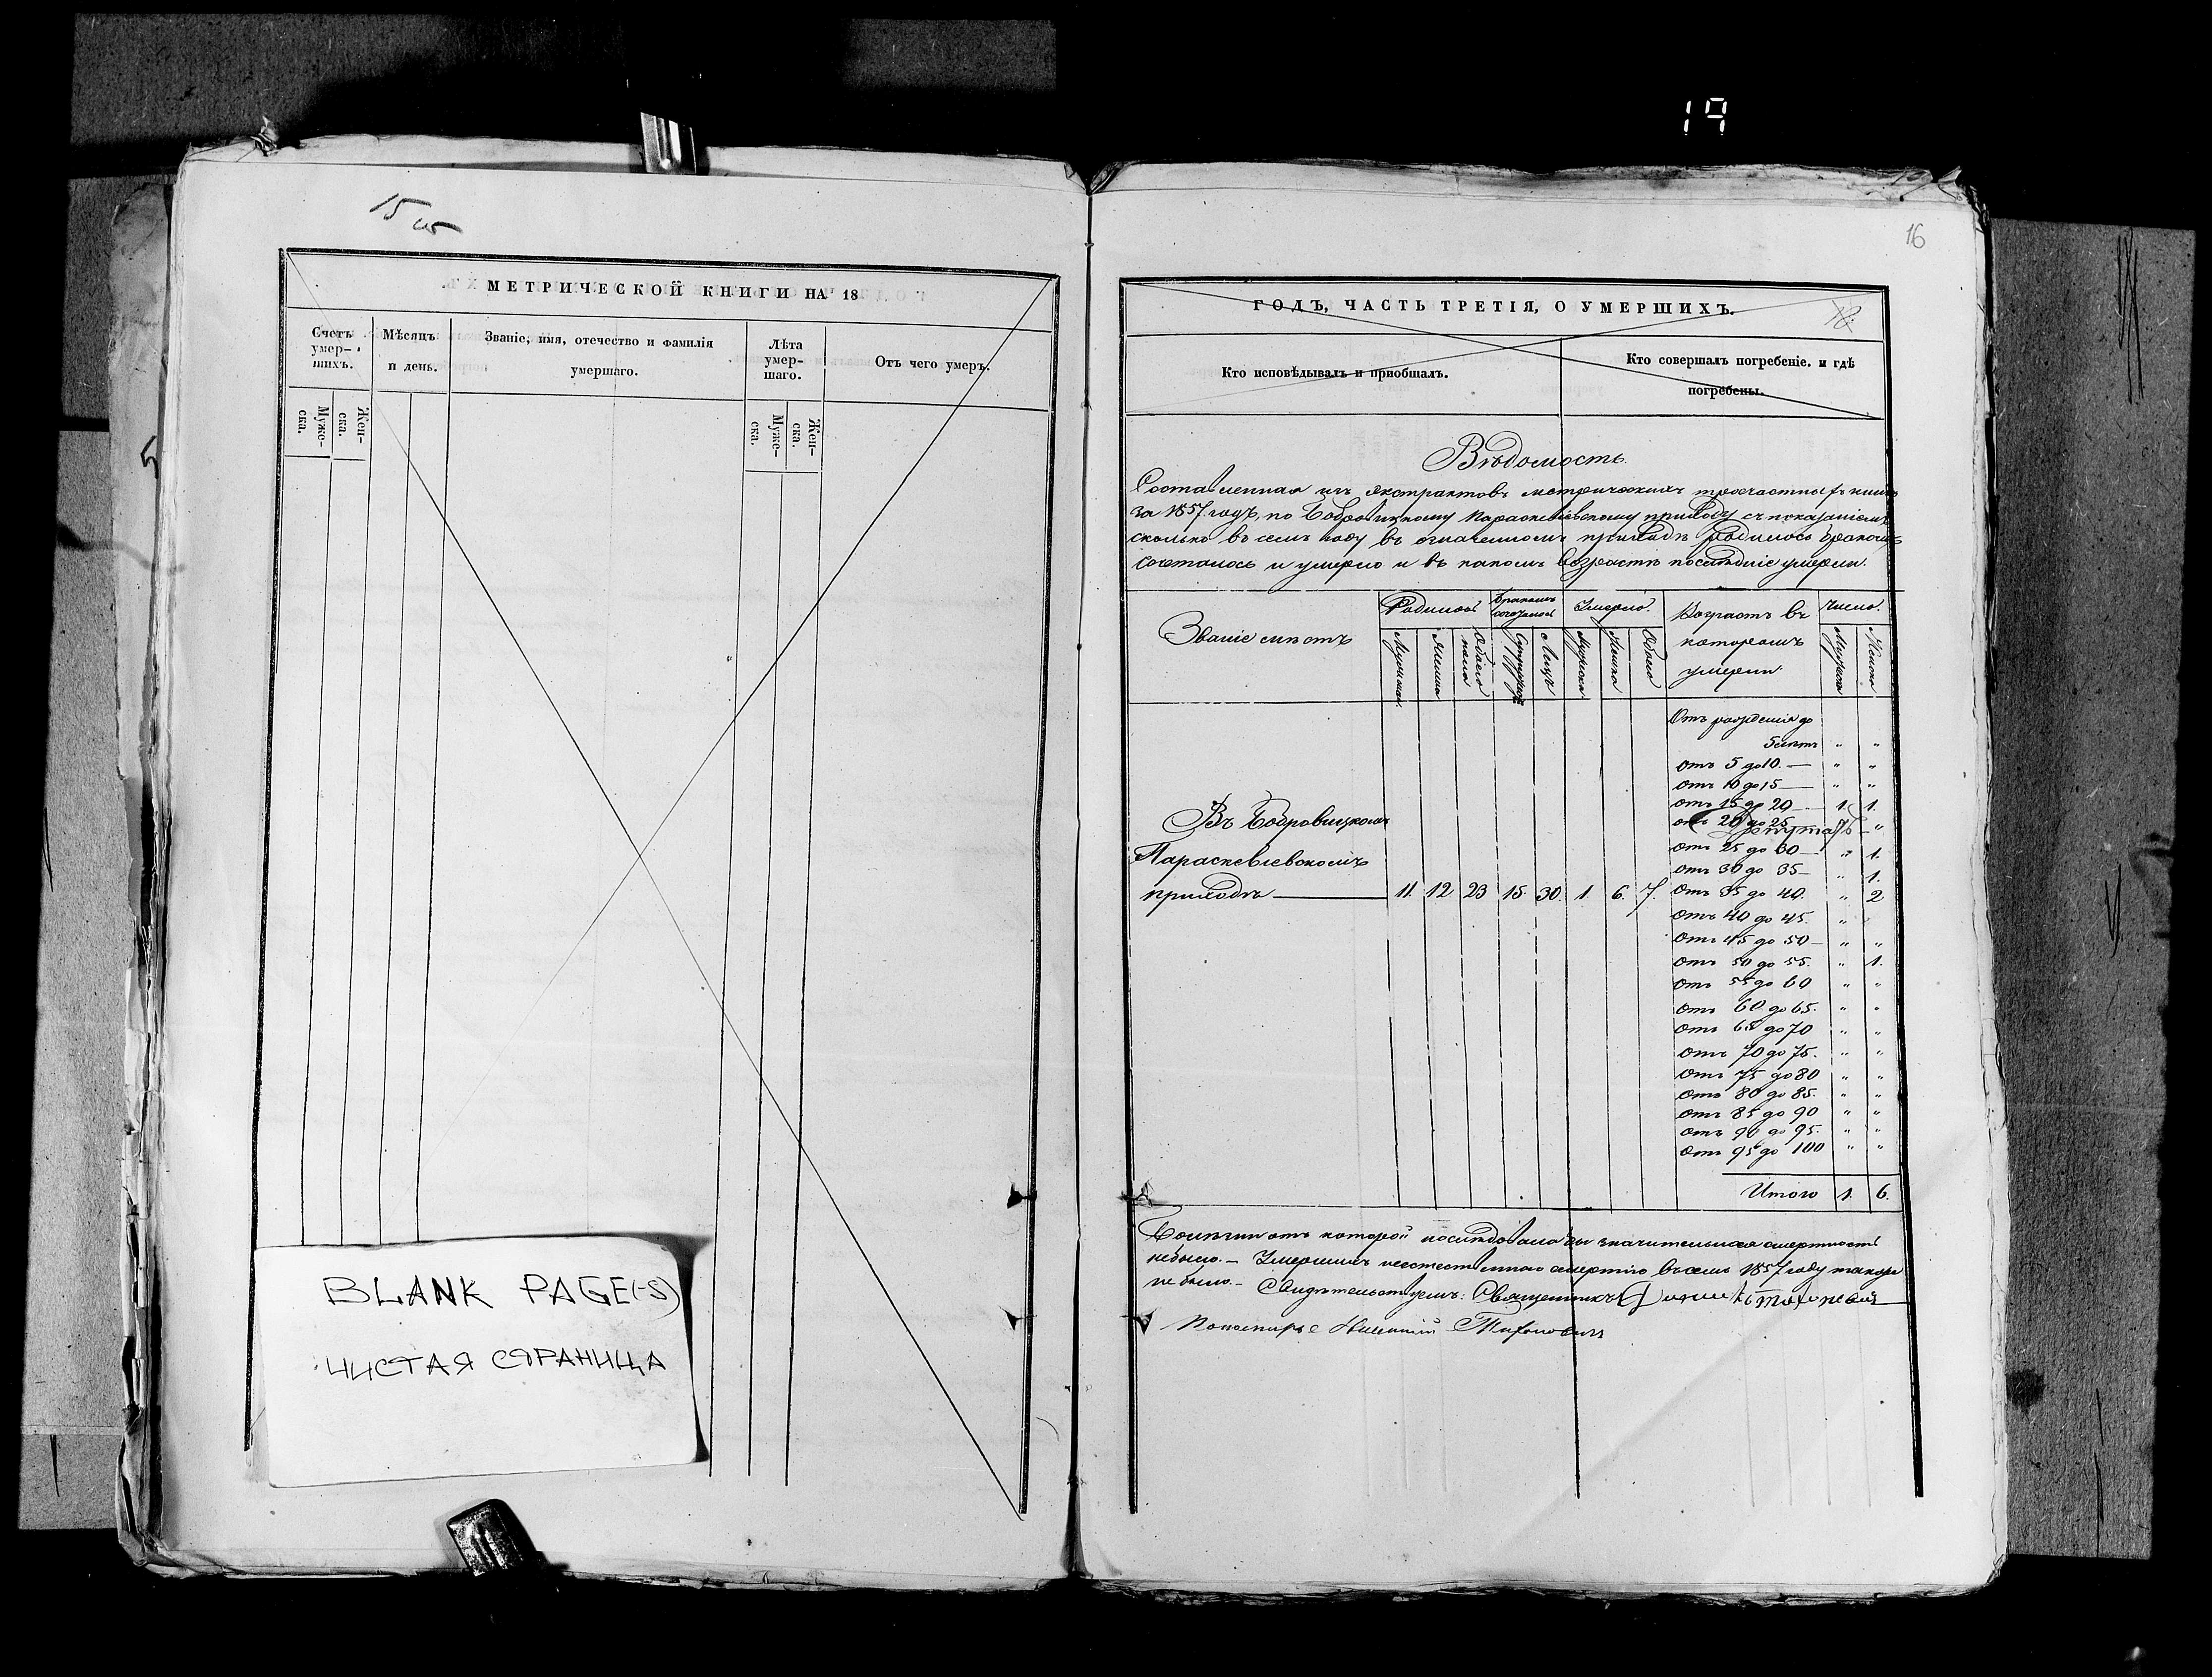 19
15 об
МЕТРИЧЕСКОЙ КНИГИ НА 18
Счетъ умер-шихъ.
Муже-ска.
Жен-ска.
Мѣсяцъ и день.
Званіе, имя, отечество и фамилія умершаго.
Лѣта умер-шаго.
Муже-ска.
Жен-ска.
Отъ чего умеръ.
BLANK PAGE(-S)
ЧИСТАЯ СТРАНИЦА
16
ГОДЪ, ЧАСТЬ ТРЕТІЯ, О УМЕРШИХЪ.
18.
Кто исповѣдывалъ и пріобщалъ.
Кто совершалъ погребеніе. и гдѣ погребены.
Вѣдомость
Составленная изъ экстрактовъ метрическихъ троечастныхъ книгъ
за 1857. годъ, по Бобровицкому Параскевіевскому приходу съ показаніемъ
сколько въ семъ году въ означенномъ приходѣ родилось бракомъ
сочеталось и умерло и въ какомъ возрастѣ послѣдніе умерли.
Званіе мѣстъ
Родилось
Мужска
Женска
Обоего пола
Бракомъ сочеталось
Супружествъ
Лицъ
Умерло.
Мужска
Женска
Обоего
Возрастъ въ которомъ умерли
Число.
Мужска
Женска
Отъ рожденія до
5 лѣтъ " "
отъ 5 до 10. — " "
отъ 10 до 15 — " "
отъ 15 до 20 — 1. 1.
отъ 20 до 25 "
отъ 25 до 30 — " 1.
отъ 30 до 35 — " 1.
Въ Бобровицкомъ
Параскевіевскомъ
приходѣ — 11. 12 23 15 30. 1. 6. 7.
отъ 35 до 40. " 2
отъ 40 до 45. "
отъ 45 до 50 — " "
отъ 50 до 55. " 1.
отъ 55 до 60 " "
отъ 60 до 65. " "
отъ 65 до 70 " "
отъ 70 до 75. " "
отъ 75 до 80 " "
отъ 80 до 85. " "
отъ 85 до 90 " "
отъ 90 до 95. " "
отъ 95 до 100 " "
Итого 1. 6.
Болѣзни отъ которой послѣдовала бы значительная смертность
небыло. — Умершихъ неестественною смертію въ семъ 1857 году также
не было. — Свидѣтельствуемъ: Священникъ
Тихоновичъ